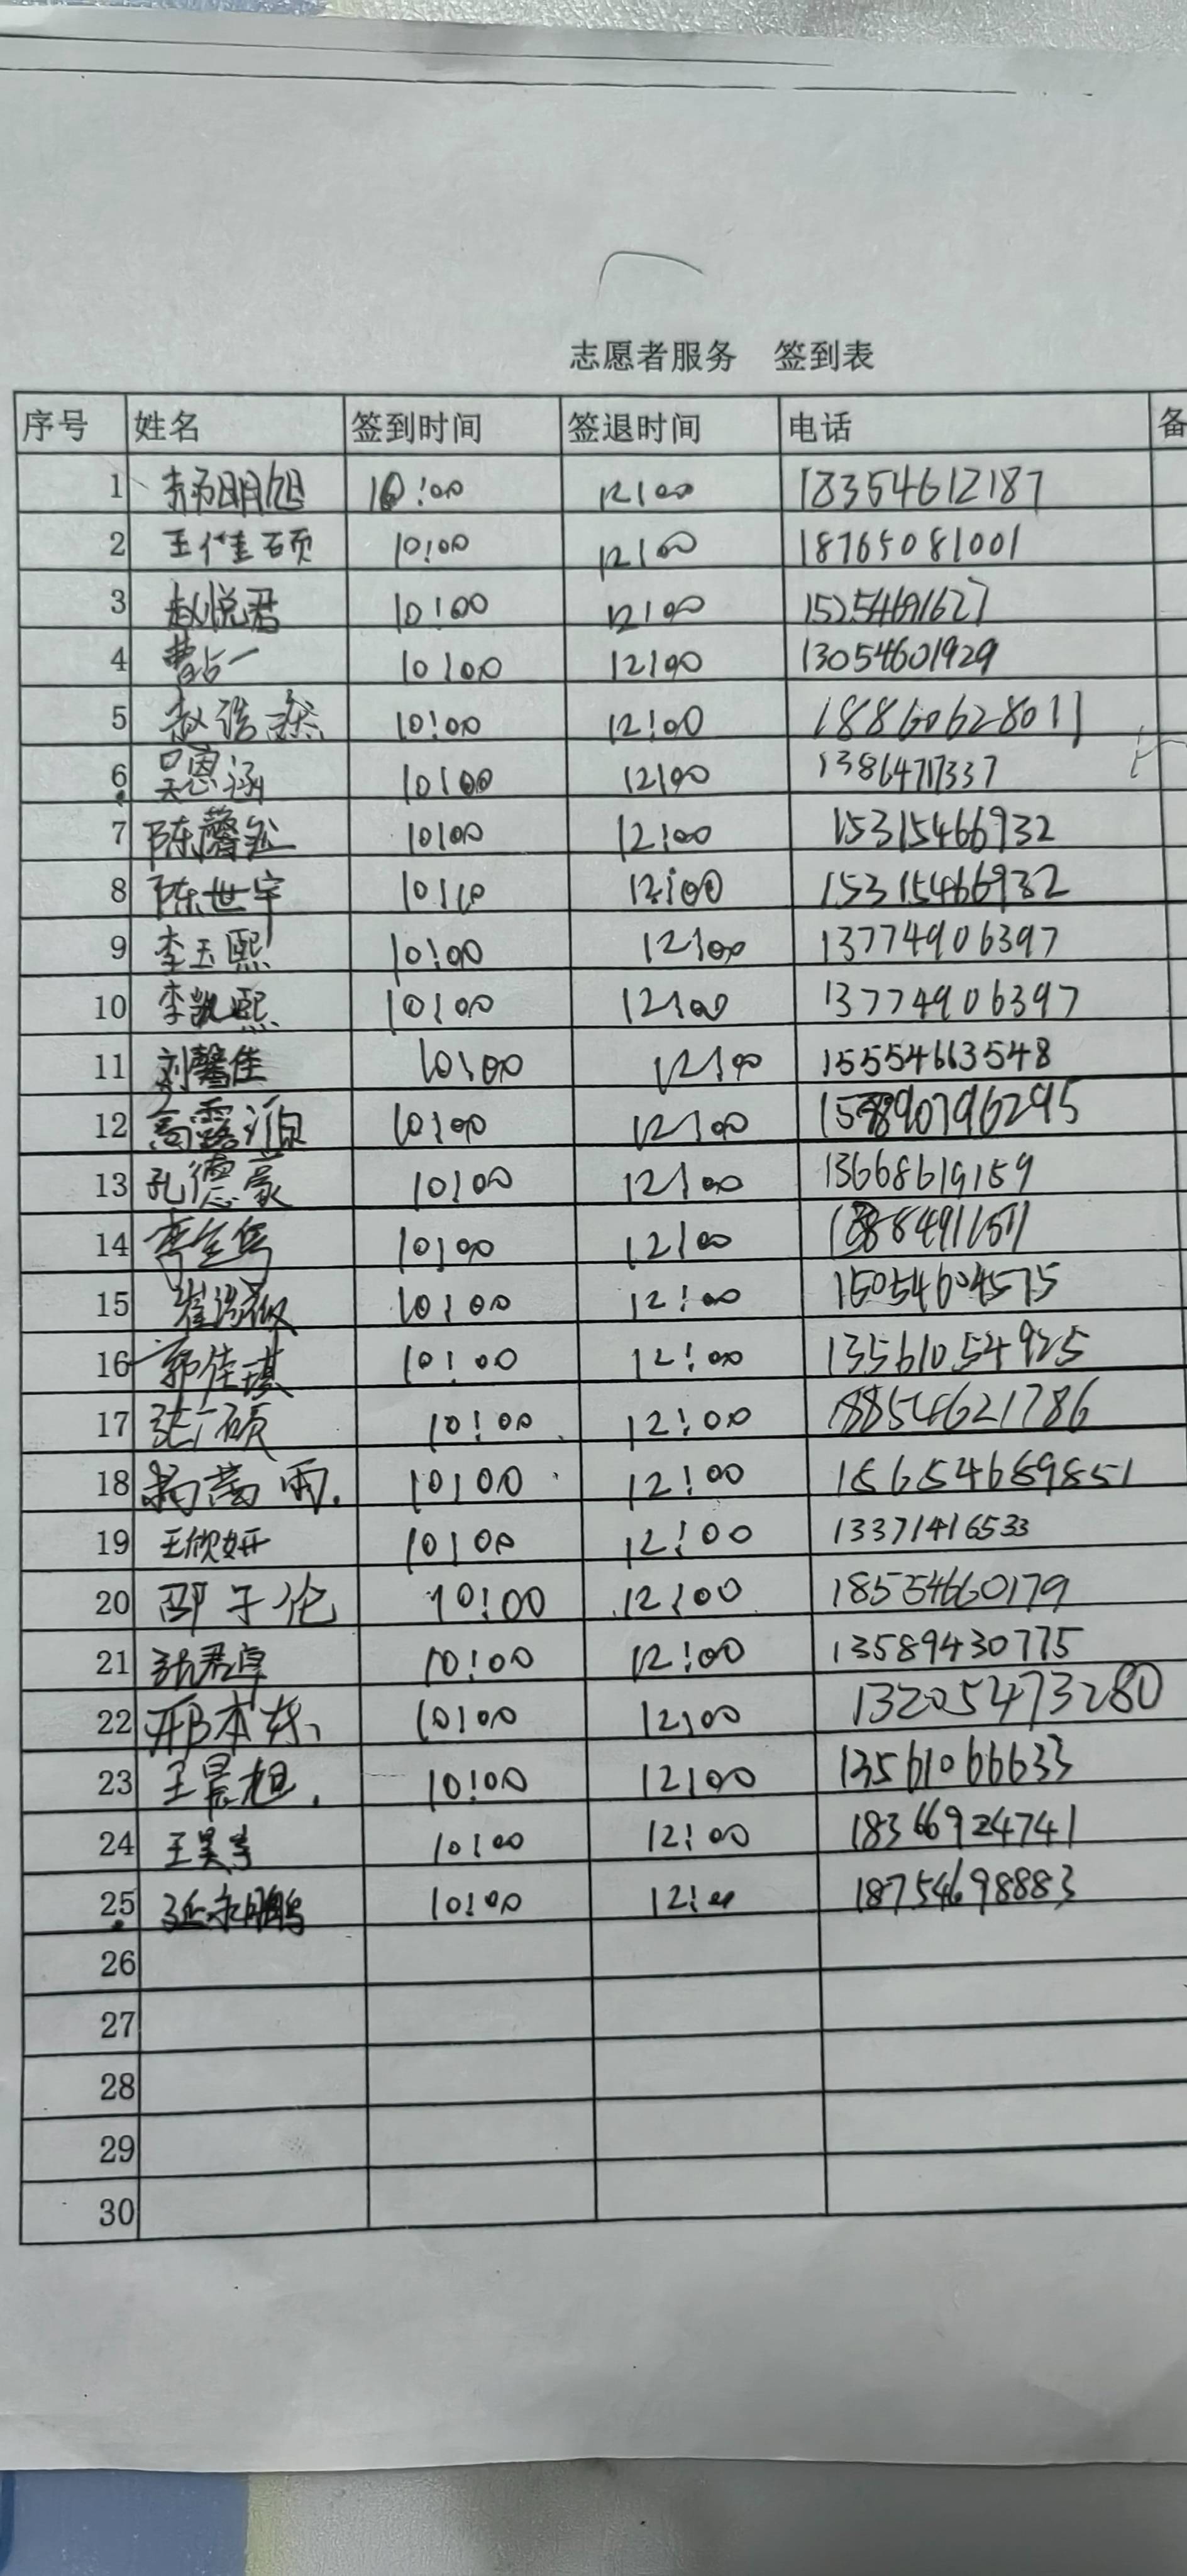 志愿者服务 签到表
序号 姓名 签到时间 签退时间 电话 备
1 明旭 10:00 12:00 18354612187
2 王佳硕 10:00 12:00 18765081001
3 赵悦君 10:00 12:00
4 曹占一 10:00 12:00 13054601929
5 赵浩然 10:00 12:00 18860628011
6 吴恩涵 10:00 12:00 13864717337
7 陈馨 10:00 12:00 15315466932
8 陈世宇 12:00 15315466932
9 李玉熙 10:00 12:00 13774906397
10 李凯熙 10:00 12:00 13774906397
11 刘馨佳 10:00 12:00 15554663548
12 高露 10:00 12:00
13 孔德豪 10:00 12:00 13668619159
14 10:00 12:00
15 崔 10:00 12:00 15054604575
16 郭佳琪 10:00 12:00 13561054925
17 张硕 10:00 12:00 18854621786
18 杨蕾雨. 10:00 12:00
19 王欣妍 10:00 12:00 13371416533
20 邵子伦 10:00 12:00 18554660179
21 张君卓 10:00 12:00 13589430775
22 邢本 10:00 12:00 13205473280
23 王晨旭. 10:00 12:00 13561066633
24 王昊 10:00 12:00 18366924741
25 永鹏 10:00 12:00 18754698883
26
27
28
29
30